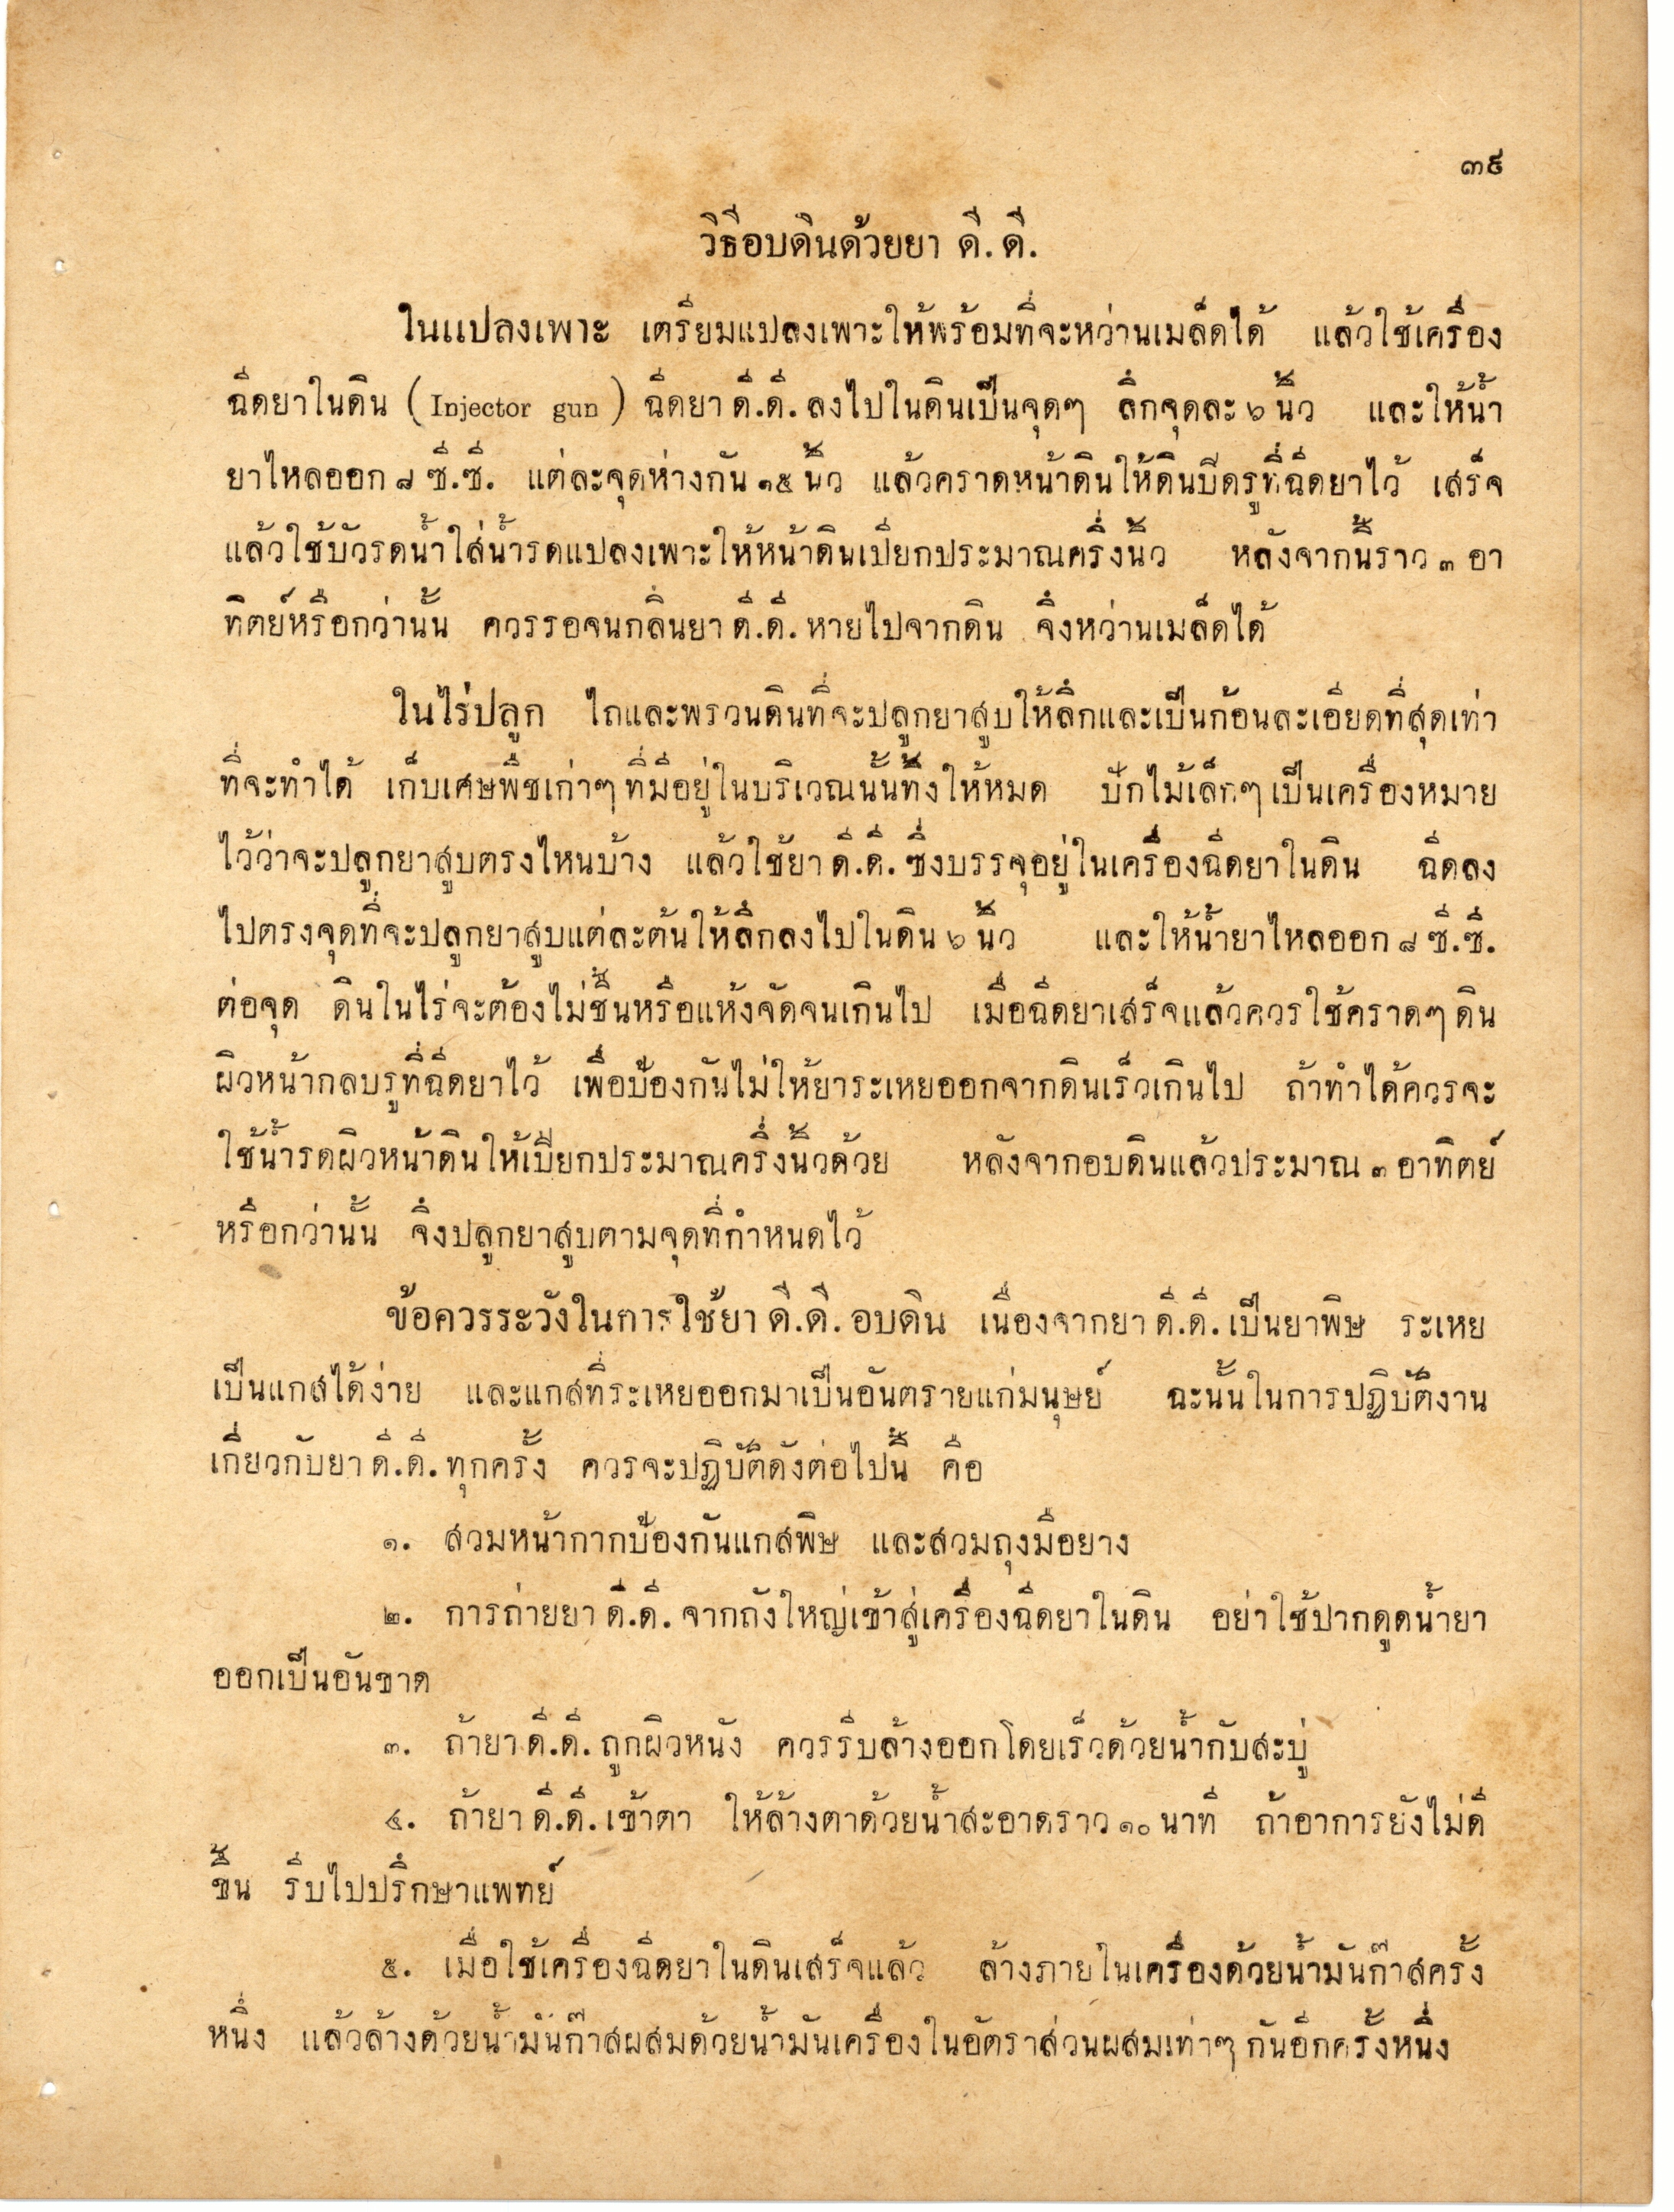 ๓๙
วิธีอบดินด้วยยา ดี. ดี.
ในแปลงเพาะ เตรียมแปลงเพาะให้พร้อมที่จะหว่านเมล็ดได้ แล้วใช้เครื่อง
ฉีดยาในดิน ( Injector gun ) ฉีดยา ดี.ดี. ลงไปในดินเป็นจุดๆ ลึกจุดละ ๖ นิ้ว และให้น้ำ
ยาไหลออก ๘ ซี.ซี. แต่ละจุดห่างกัน ๑๕ นิ้ว แล้วคราดหน้าดินให้ดินปิดรูที่ฉีดยาไว้ เสร็จ
แล้วใช้บัวรดน้ำใส่น้ำรดแปลงเพาะให้หน้าดินเปียกประมาณครึ่งนิ้ว หลังจากนี้ราว ๓ อา
ทิตย์หรือกว่านั้น ควรรอจนกลิ่นยา ดี.ดี. หายไปจากดิน จึงหว่านเมล็ดได้
ในไร่ปลูก ไถและพรวนดินที่จะปลูกยาสูบให้ลึกและเป็นก้อนละเอียดที่สุดเท่า
ที่จะทำได้ เก็บเศษพืชเก่าๆ ที่มีอยู่ในบริเวณนั้นทิ้งให้หมด ปักไม้เล็กๆ เป็นเครื่องหมาย
ไว้ว่าจะปลูกยาสูบตรงไหนบ้าง แล้วใช้ยา ดี.ดี. ซึ่งบรรจุอยู่ในเครื่องฉีดยาในดิน ฉีดลง
ไปตรงจุดที่จะปลูกยาสูบแต่ละต้นให้ลึกลงไปในดิน ๖ นิ้ว และให้น้ำยาไหลออก ๘ ซี.ซี.
ต่อจุด ดินในไร่จะต้องไม่ชื้นหรือแห้งจัดจนเกินไป เมื่อฉีดยาเสร็จแล้วควรใช้คราดๆ ดิน
ผิวหน้ากลบรูที่ฉีดยาไว้ เพื่อป้องกันไม่ให้ยาระเหยออกจากดินเร็วเกินไป ถ้าทำได้ควรจะ
ใช้น้ำรดผิวหน้าดินให้เปียกประมาณครึ่งนิ้วด้วย หลังจากอบดินแล้วประมาณ ๓ อาทิตย์
หรือกว่านั้น จึงปลูกยาสูบตามจุดที่กำหนดไว้
ข้อควรระวังในการใช้ยา ดี.ดี. อบดิน เนื่องจากยา ดี.ดี. เป็นยาพิษ ระเหย
เป็นแกสได้ง่าย และแกสที่ระเหยออกมาเป็นอันตรายแก่มนุษย์ ฉะนั้นในการปฏิบัติงาน
เกี่ยวกับยา ดี.ดี. ทุกครั้ง ควรจะปฏิบัติดังต่อไปนี้ คือ
๑. สวมหน้ากากป้องกันแกสพิษ และสวมถุงมือยาง
๒. การถ่ายยา ดี.ดี. จากถังใหญ่เข้าสู่เครื่องฉีดยาในดิน อย่าใช้ปากดูดน้ำยา
ออกเป็นอันขาด
๓. ถ้ายา ดี.ดี. ถูกผิวหนัง ควรรีบล้างออกโดยเร็วด้วยน้ำกับสะบู่
๔. ถ้ายา ดี.ดี. เข้าตา ให้ล้างตาด้วยน้ำสะอาดราว ๑๐ นาที ถ้าอาการยังไม่ดี
ขึ้น รีบไปปรึกษาแพทย์
๕. เมื่อใช้เครื่องฉีดยาในดินเสร็จแล้ว ล้างภายในเครื่องด้วยน้ำมันก๊าสครั้ง
หนึ่ง แล้วล้างด้วยน้ำมันก๊าสผสมด้วยน้ำมันเครื่องในอัตราส่วนผสมเท่าๆ กันอีกครั้งหนึ่ง